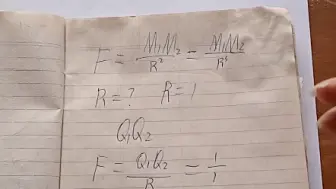 F = M₁M₂/R² = M₁M₂/R⁴
R = ? R = 1
Q₁Q₂
F = Q₁Q₂/R = 1/1